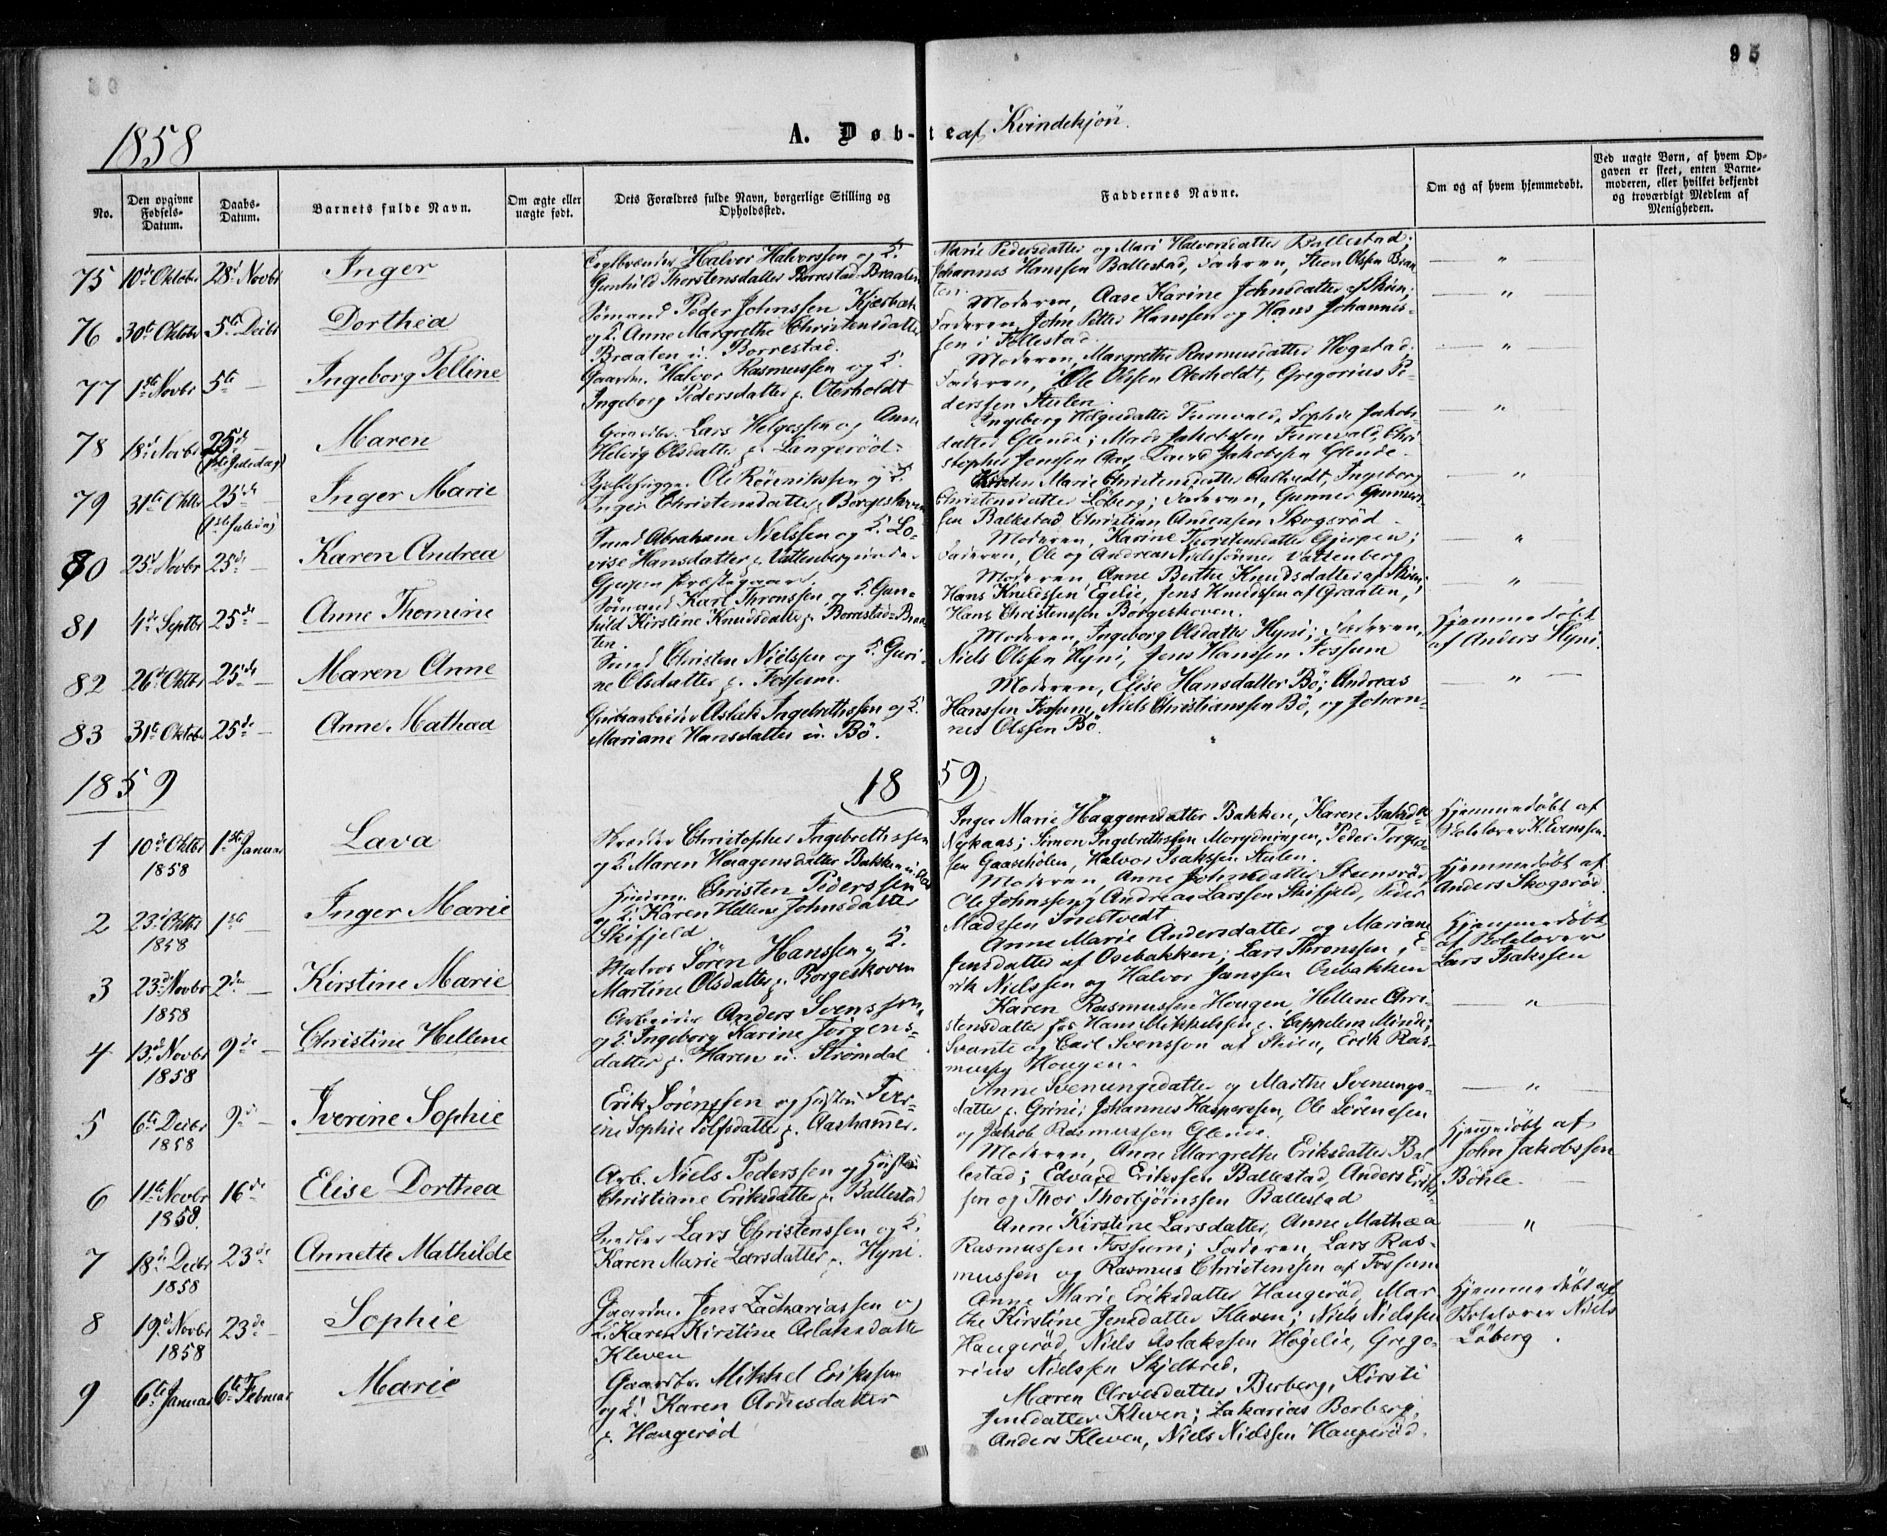 95
1858
A. Døbte af Kvindekjøn.
No.
Den opgivne Fødsels-Datum.
Daabs-Datum.
Barnets fulde Navn.
Om ægte eller uægte født.
Dets Forældres fulde Navn, borgerlige Stilling og Opholdssted.
Faddernes Navne.
Om og af hvem hjemmedøbt.
Ved uægte Børn, af hvem Opgaven er skeet, enten Barnemoderen, eller hvilket bekjendt og troværdigt Medlem af Menigheden.
75 10de Oktober 28de Novbr Inger
Halvor Halvorssen og H.
Gunhild Thorstensdatter Borrestad-Braaten
Marie Pedersdatter og Mari Halvorsdatter Ballestad;
Johannes Hanssen Ballestad, Faderen, Steen Olsen Braa-
ten. "
76 30te Oktober 5te Decbr Dorthea
Sömand Peder Johnssen Kjærbæk
og H. Anne Margrethe Christensdatter
Braaten u. Borrestad.
Moderen, Aase Karine Johnsdatter af Skien;
Faderen, John Petter Hanssen og Hans Johannis-
sen i Follestad. "
77 1ste Novbr 5te — Ingeborg Telline
Gaardm. Halvor Rasmussen og H.
Ingeborg Pedersdatter p. Oterholdt
Moderen, Margrethe Rasmusdatter Hogstad,
Faderen, Ole Olsen Oterholdt, Gregorius Pe-
derssen Stulen. "
78 18de Novbr 25de (1ste Juledag) Maren
Lars Helgessen og Anne
Helvig Olsdatter p. Langerød.
Ingeborg Helgesdatter Furuvald, Sophie Jakobs-
datter Glende; Mads Jakobssen Furuvald, Chri-
stopher Jenssen Aas, Jakobssen Glende. "
79 31te Oktbr 25de (1ste Juledag) Inger Marie
Ole Rörenikssen og H.
Inger Christensdatter p. Borgeskoven
Kirsten Marie Christensdatter, Ingeborg
Christensdatter Löberg; Faderen, Gunner Gunners-
sen Ballestad Christian Anderssen Skogsrød. "
80 25de Novbr 25de — Karen Andrea
Smed Abraham Nielssen og H. Lo-
vise Hansdatter p. Vattenberg under
Gjerpen Præstegaard.
Moderen, Karine Thorstensdatter Gjerpen;
Faderen, Ole og Andreas Nielssønner Vattenberg. "
81 4de Septbr 25de — Anne Thomine
Sömand Karl Thronssen og H. Gun-
hild Kirstine Knudsdatter p. Borrestad-Braa-
ten.
Moderen, Anne Berthe Knudsdatter af Skien;
Hans Knudssen Egelie, Jens Knudssen af Graaten,
Hans Christenssen Borgeskoven. "
82 26de Oktbr 25de — Maren Anne
Smed Christen Nielssen og H. Guri-
ne Olsdatter p. Fossum.
Moderen, Ingeborg Olsdatter Hyni; Faderen,
Niels Olssen Hyni, Jens Hanssen Fossum
Hjemmedøbt
af Anders Hyni.
83 31te Oktober 25de — Anne Mathea
Aslak Ingebrethssen og H.
Mariane Hansdatter u. Bö.
Moderen, Elise Hansdatter Bö; Andreas
Hanssen Fossum, Niels Christianssen Bö, og Johan-
nes Olssen Bö. "
1859 1859
1 10de Oktbr 1858 1ste Januar Lava
Skræder Christopher Ingebrethssen
og H. Maren Haagensdatter Bakken
Inger Marie Haagensdatter Bakken, Karen Isaksd.
Nykaas; Simon Ingebrethssen Morgedningen, Peder Torges-
sen Gaasehölen, Halvor Isakssen Stulen.
Hjemmedøbt af
Skolelærer K. Evenssen.
2 23de Oktbr 1858 1ste Inger Marie
Christen Pederssen
og H. Karen Hellene Johnsdatter
Skifjeld
Moderen, Anne Johnsdatter Steensröd,
Ole Johnssen og Andreas Larssen Skifjeld, Peder
Madssen Smetvedt
Hjemmedøbt af
Anders Skogsrød.
3 23de Novbr 1858 2den — Kirstine Marie
Matros Sören Hanssen og H.
Martine Olsdatter p. Borgeskoven
Anne Marie Andersdatter og Mariane
Jensdatter af Osebakken; Lars Thronssen, E-
rik Nielssen og Halvor Janssen Osebakken
Hjemmedøbt
af Skolelærer
Lars Isakssen
4 13de Novbr 1858 9de — Christine Hellene
Arbeider Anders Svensson
og H. Ingeborg Karine Jörgens-
datter p. Haren u. Strömdal
Karen Rasmussen Hougen, Hellene Chri-
stensdatter for Hans Mikkelssen p. Cappelens Minde;
Svante og Carl Svensson af Skien, Erik Ras-
mussen Hougen. "
5 6te Decbr 1858 9de — Iverine Sophie
Erik Sörenssen og Hustru Iver-
ine Sophie Rolfsdatter p. Aashammer.
Anne Svenungsdatter og Marthe Svenungs-
datter p. Grini; Johannes Kasperssen, Ole Sörenssen
og Jakob Rasmussen Glende. "
6 11te Novbr 1858. 16de Elise Dorthea
Arb. Niels Pederssen og Hustru
Christiane Eriksdatter p. Ballestad
Moderen, Anne Margrethe Eriksdatter Bal-
lestad; Edvard Erikssen Ballestad, Anders Eriks-
sen og Thor Thorbjörnssen Ballestad
Hjemmedøbt af
John Jakobssen
Böhle.
7 18de Decbr 1858 23de Annette Mathilde
Lars Christenssen og H.
Karen Marie Larsdatter p. Hyni.
Anne Kirstine Larsdatter, Anne Mathea
Rasmussen Fossum; Faderen, Lars Ras-
mussen og Rasmus Christenssen af Fossum "
8 19de Novbr 1858 23de Sophie
Gaardm. Jens Zachariassen og
H. Karen Kirstine Aslaksdatter
Kleven
Anne Marie Eriksdatter Haugeröd, Mar-
the Kirstine Jensdatter Kleven; Niels Nielssen
Haugeröd, Niels Aslakssen Högelie, Grego-
rius Nielssen Skjelbred.
Hjemmedøbt af
Skolelærer Niels
Löberg.
9 6te Januar 6te Februar Marie
Gaardbr. Mikkel Erikssen
og H. Karen Arnesdatter
p. Haugeröd
Maren Arvesdatter Berberg, Kirsti
Jensdatter Kleven; Zakarias Berberg,
Anders Kleven, Niels Nielssen Haugeröd.